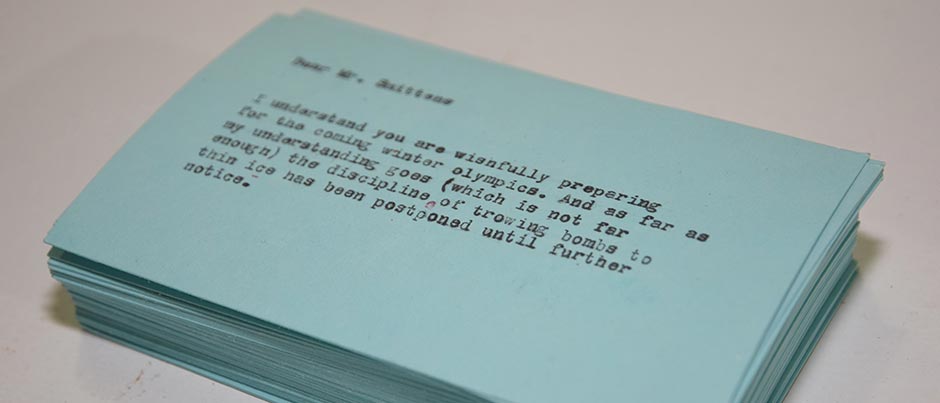 Dear Mr. Smittens
I understand you are wishfully preparing
for the coming winter olympics. And as far as
my understanding goes (which is not far
enough) the discipline of trowing bombs to
thin ice has been postponed until further
notice.